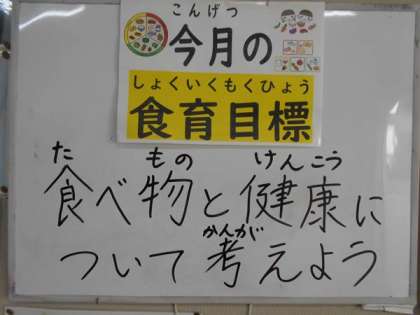 こんげつ
今月の
しょくいくもくひょう
食育目標
た もの けんこう
食べ物と健康に
かんが
ついて考えよう